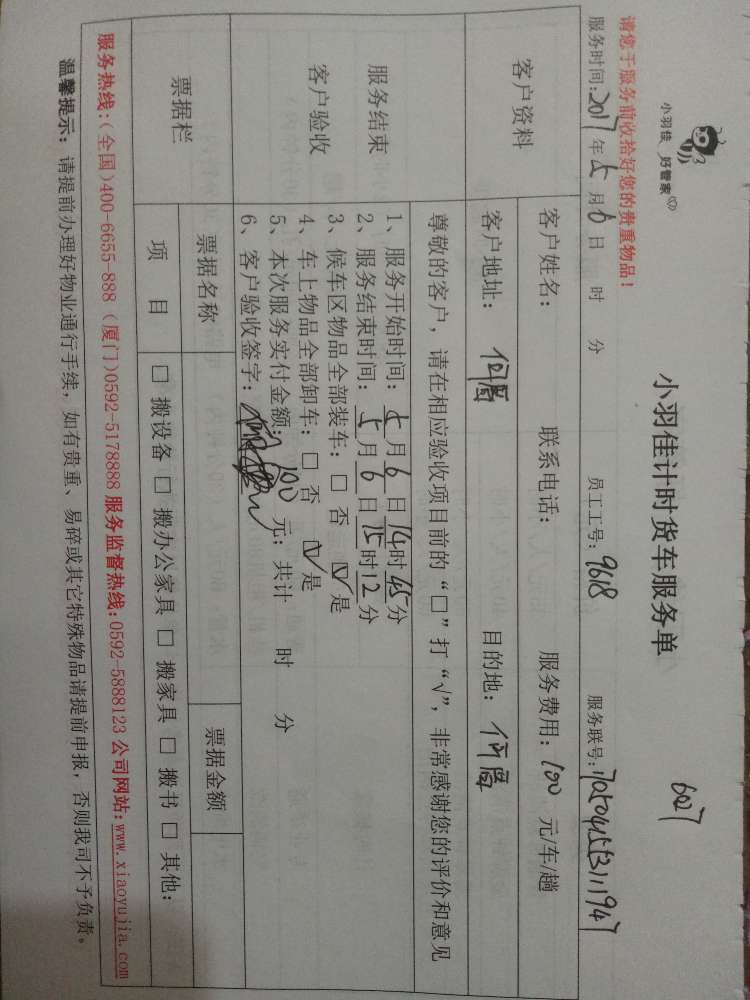 小羽佳 好管家
请您于服务前收拾好您的贵重物品！
607
小羽佳计时货车服务单
服务时间:2017年5月6日 时 分 员工工号:9618 服务联号:
客户资料
客户姓名： 联系电话： 服务费用：100 元/车/趟
客户地址：何厝 目的地：何厝
服务结束
客户验收
尊敬的客户，请在相应验收项目前的“□”打“√”，非常感谢您的评价和意见
1、服务开始时间：5月6日14时45分
2、服务结束时间：5月6日15时12分
3、候车区物品全部装车：□ 否 ☑ 是
4、车上物品全部卸车：□ 否 ☑ 是
5、本次服务实付金额：100 元；共计 时 分
6、客户验收签字：
票据栏
票据名称 票据金额
项 目 □ 搬设备 □ 搬办公家具 □ 搬家具 □ 搬书 □ 其他：
服务热线:(全国)400-6655-888（厦门)0592-5178888 服务监督热线:0592-5888123 公司网站:www.xiaoyujia.com
温馨提示：请提前办理好物业通行手续，如有贵重、易碎或其它特殊物品请提前申报，否则我司不予负责。